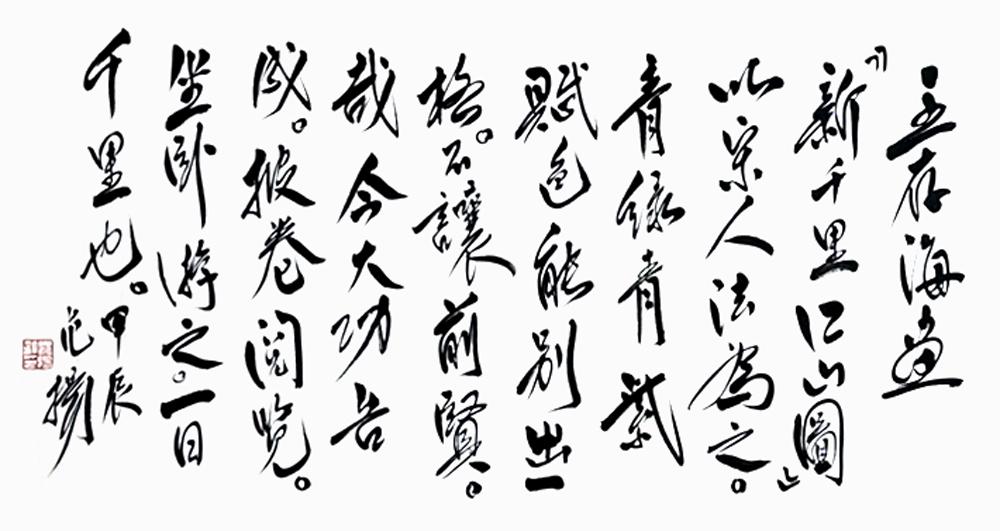 王存海畫
『新千里江山圖』
以宋人法為之。
青緑青紫
賦色能别出一
格。不讓前賢。
哉今大功告
成。披卷閲覽。
坐卧游之。一日
千里也。
甲辰
范揚